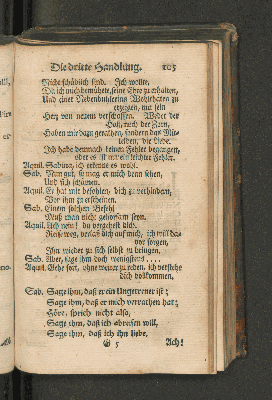 Die dritte Handlung. 105
Nicht schädlich sind. Ich wolte,
Da ich mich bemühete, seine Ehre zu erhalten,
Und einer Nebenbuhlerin Wohlthaten zu
erzeigen, mir sein
Herz von neuem verschaffen. Weder der
Haß, noch der Zorn,
Haben mir dazu gerathen, sondern das Mit-
leiden, die Liebe.
Ich habe demnach keinen Fehler begangen,
oder es ist nur ein leichter Fehler.
Aquil. Sabina, ich erkenne es wohl.
Sab. Nun gut, so mag er mich denn sehen,
Und sich schämen.
Aquil. Er hat mir befohlen, dich zu verhindern,
Vor ihm zu erscheinen.
Sab. Einem solchen Befehl
Muß man nicht gehorsam seyn.
Aquil. Ach nein! du vergehest dich.
Reise weg, verlaß dich auf mich, ich will das
vor sorgen,
Ihn wieder zu sich selbst zu bringen.
Sab. Aber, sage ihm doch wenigstens ....
Aquil. Gehe fort, ohne weiter zu reden, ich verstehe
dich vollkommen.
Sab. Sage ihm, daß er ein Ungetreuer ist;
Sage ihm, daß er mich verrathen hat;
Höre, sprich nicht also,
Sage ihm, daß ich abreisen will,
Sage ihm, daß ich ihn liebe,
G 5 Ach!